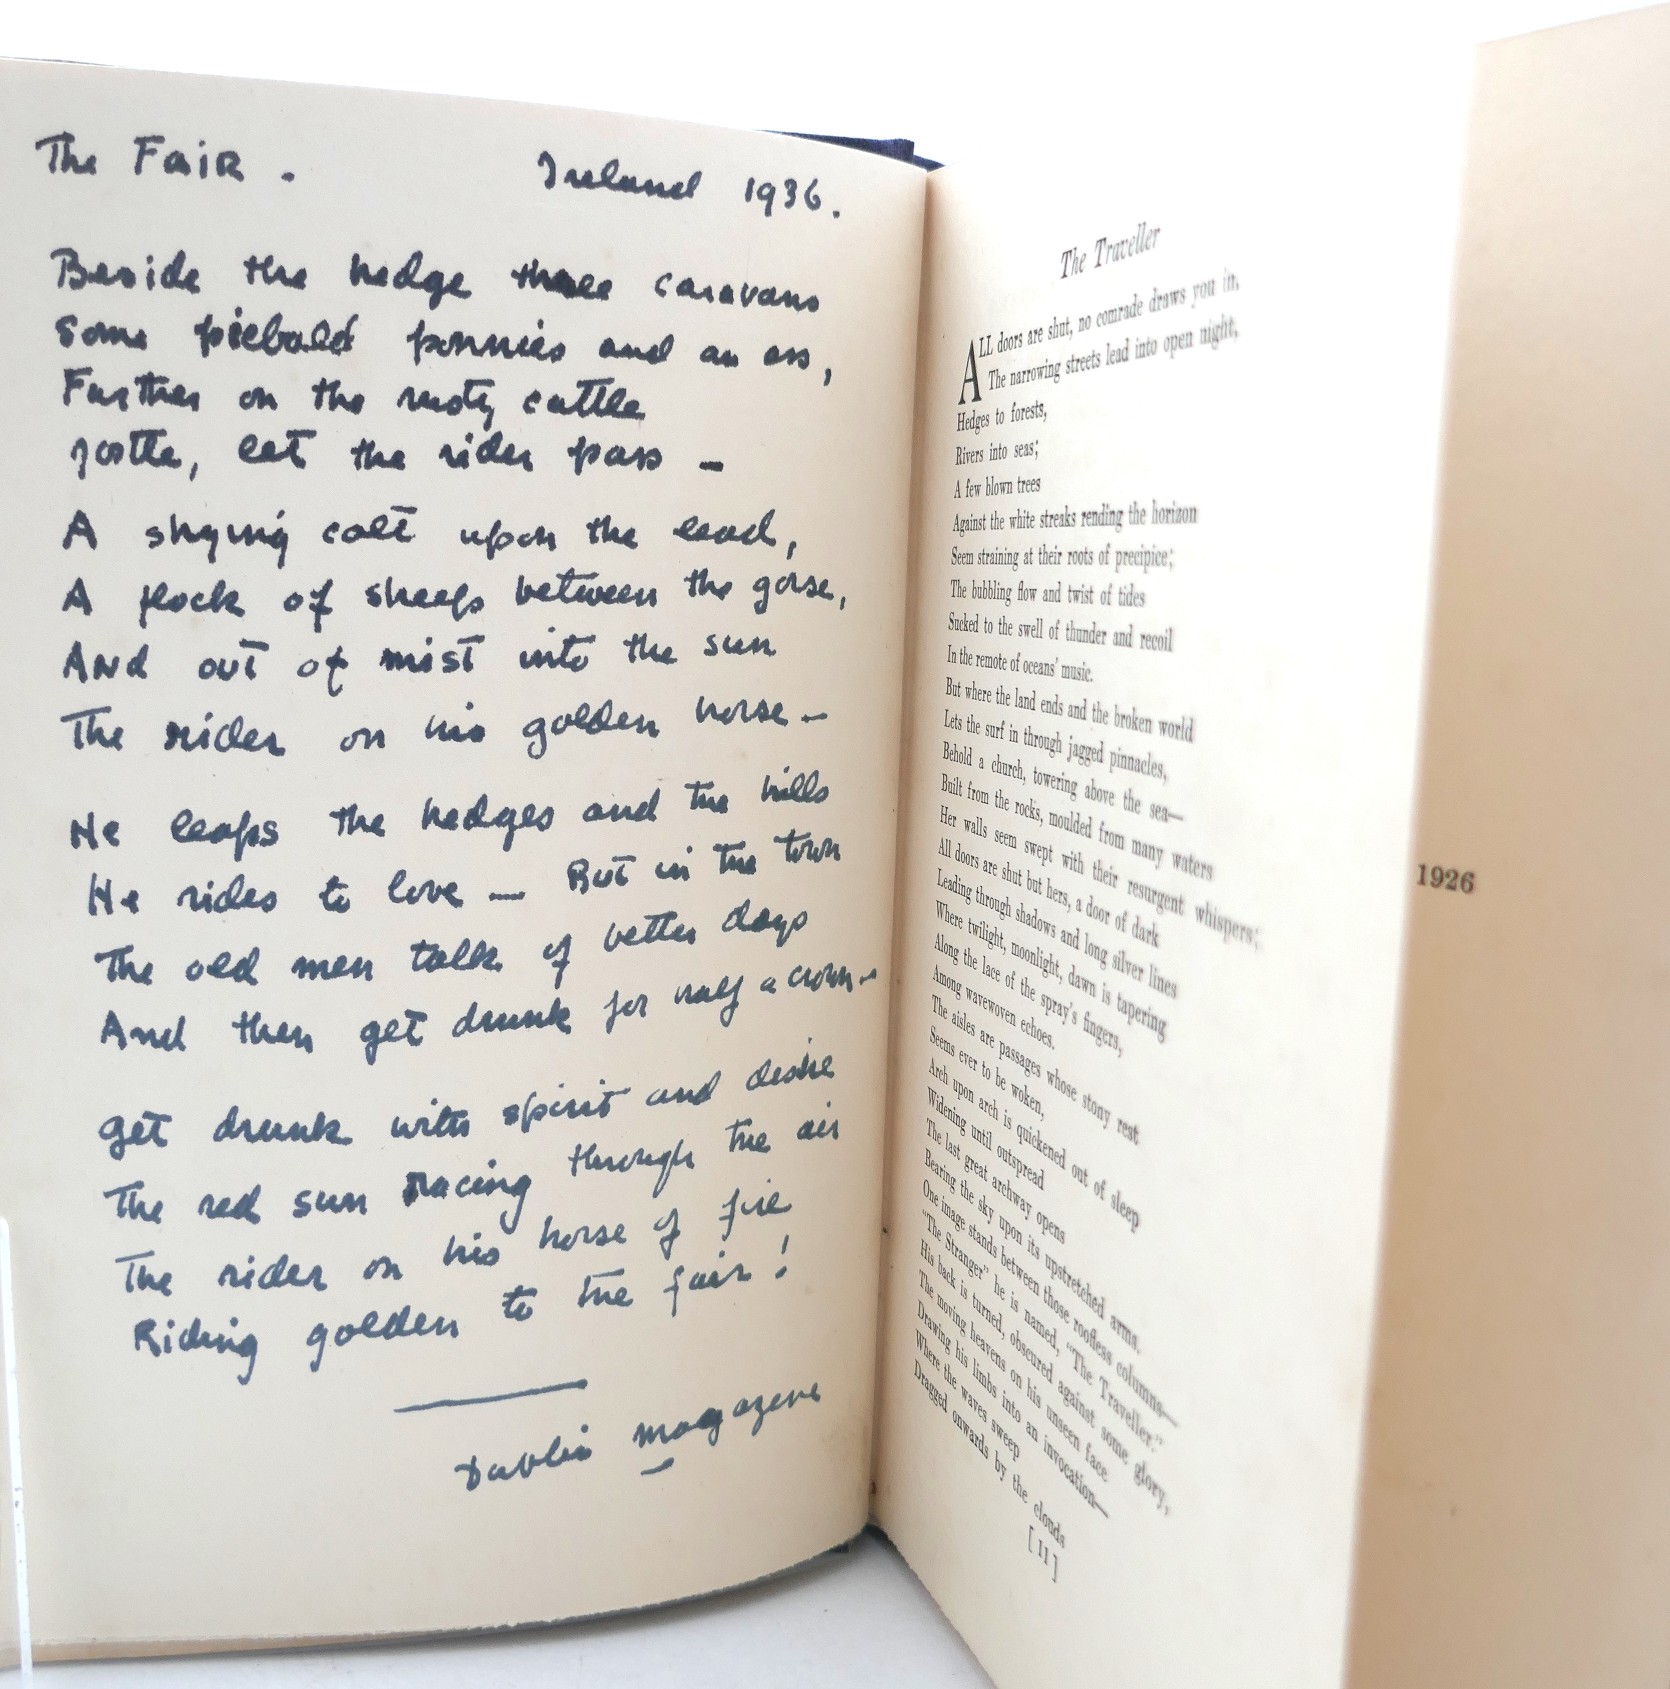 The Fair. Ireland 1936.
Beside the hedge three caravans
Some piebald ponnies and an ass,
Further on the rusty cattle
jostle, let the rider pass –
A shying colt upon the lead,
A flock of sheep between the gorse,
And out of mist into the sun
The rider on his golden horse –
He leaps the hedges and the hills
He rides to love – But in the town
The old men talk of better days
And then get drunk for half a crown –
get drunk with spirit and desire
The red sun racing through the air
The rider on his horse of fire
Riding golden to the fair!
Dublin Magazine
The Traveller
ALL doors are shut, no comrade draws you in,
The narrowing streets lead into open night,
Hedges to forests,
Rivers into seas;
A few blown trees
Against the white streaks rending the horizon
Seem straining at their roots of precipice;
The bubbling flow and twist of tides
Sucked to the swell of thunder and recoil
In the remote of oceans' music.
But where the land ends and the broken world
Lets the surf in through jagged pinnacles,
Behold a church, towering above the sea—
Built from the rocks, moulded from many waters
Her walls seem swept with their resurgent whispers;
All doors are shut but hers, a door of dark
Leading through shadows and long silver lines
Where twilight, moonlight, dawn is tapering
Along the lace of the spray's fingers,
Among wavewoven echoes.
The aisles are passages whose stony rest
Seems ever to be woken,
Arch upon arch is quickened out of sleep
Widening until outspread
The last great archway opens
Bearing the sky upon its upstretched arms.
One image stands between those roofless columns—
"The Stranger" he is named, "The Traveller."
His back is turned, obscured against some glory,
The moving heavens on his unseen face
Drawing his limbs into an invocation—
Where the waves sweep
Dragged onwards by the clouds
[ 11 ]
1926